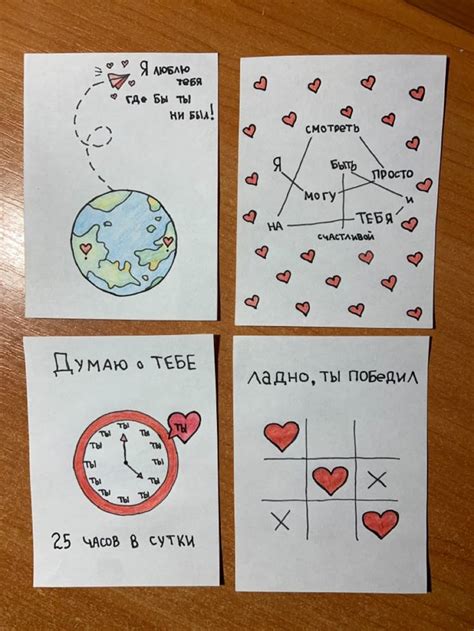 Я люблю
тебя
где бы ты
ни был!
смотреть
Я
быть
просто
могу
и
на
тебя
счастливой
Думаю о тебе
ты
ты
ты
ты
ты
ты
ты
ты
ты
ты
ты
ты
ты
25 часов в сутки
Ладно, ты победил
X
X